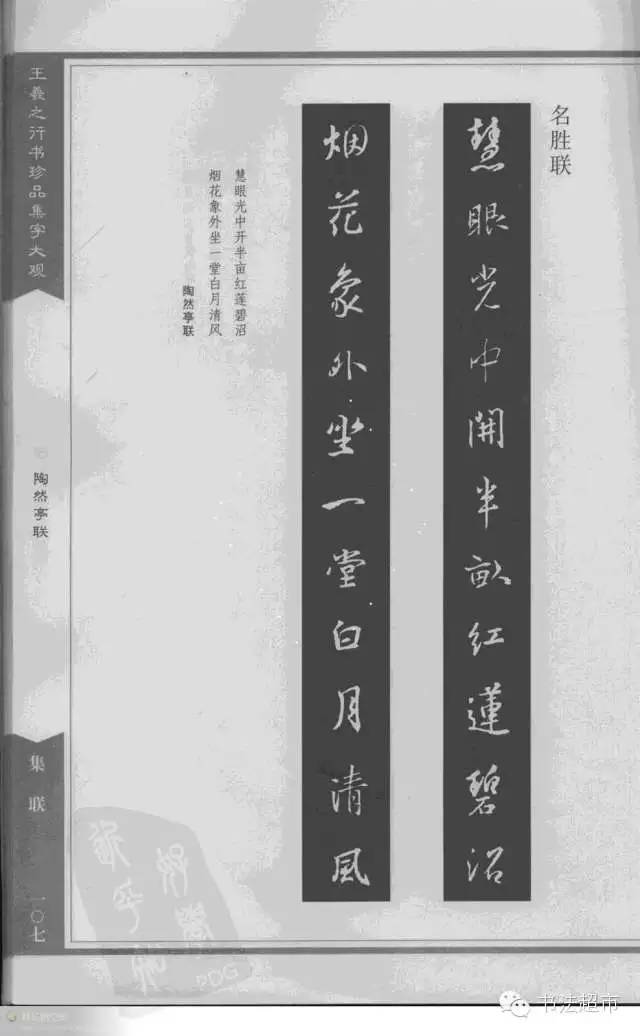 名胜联
慧眼光中開半畝红蓮碧沼
烟花象外坐一堂白月清風
慧眼光中开半亩红莲碧沼
烟花象外坐一堂白月清风
陶然亭联
王羲之行书珍品集字大观
陶然亭联
集联
一〇七
PDG
书法超市